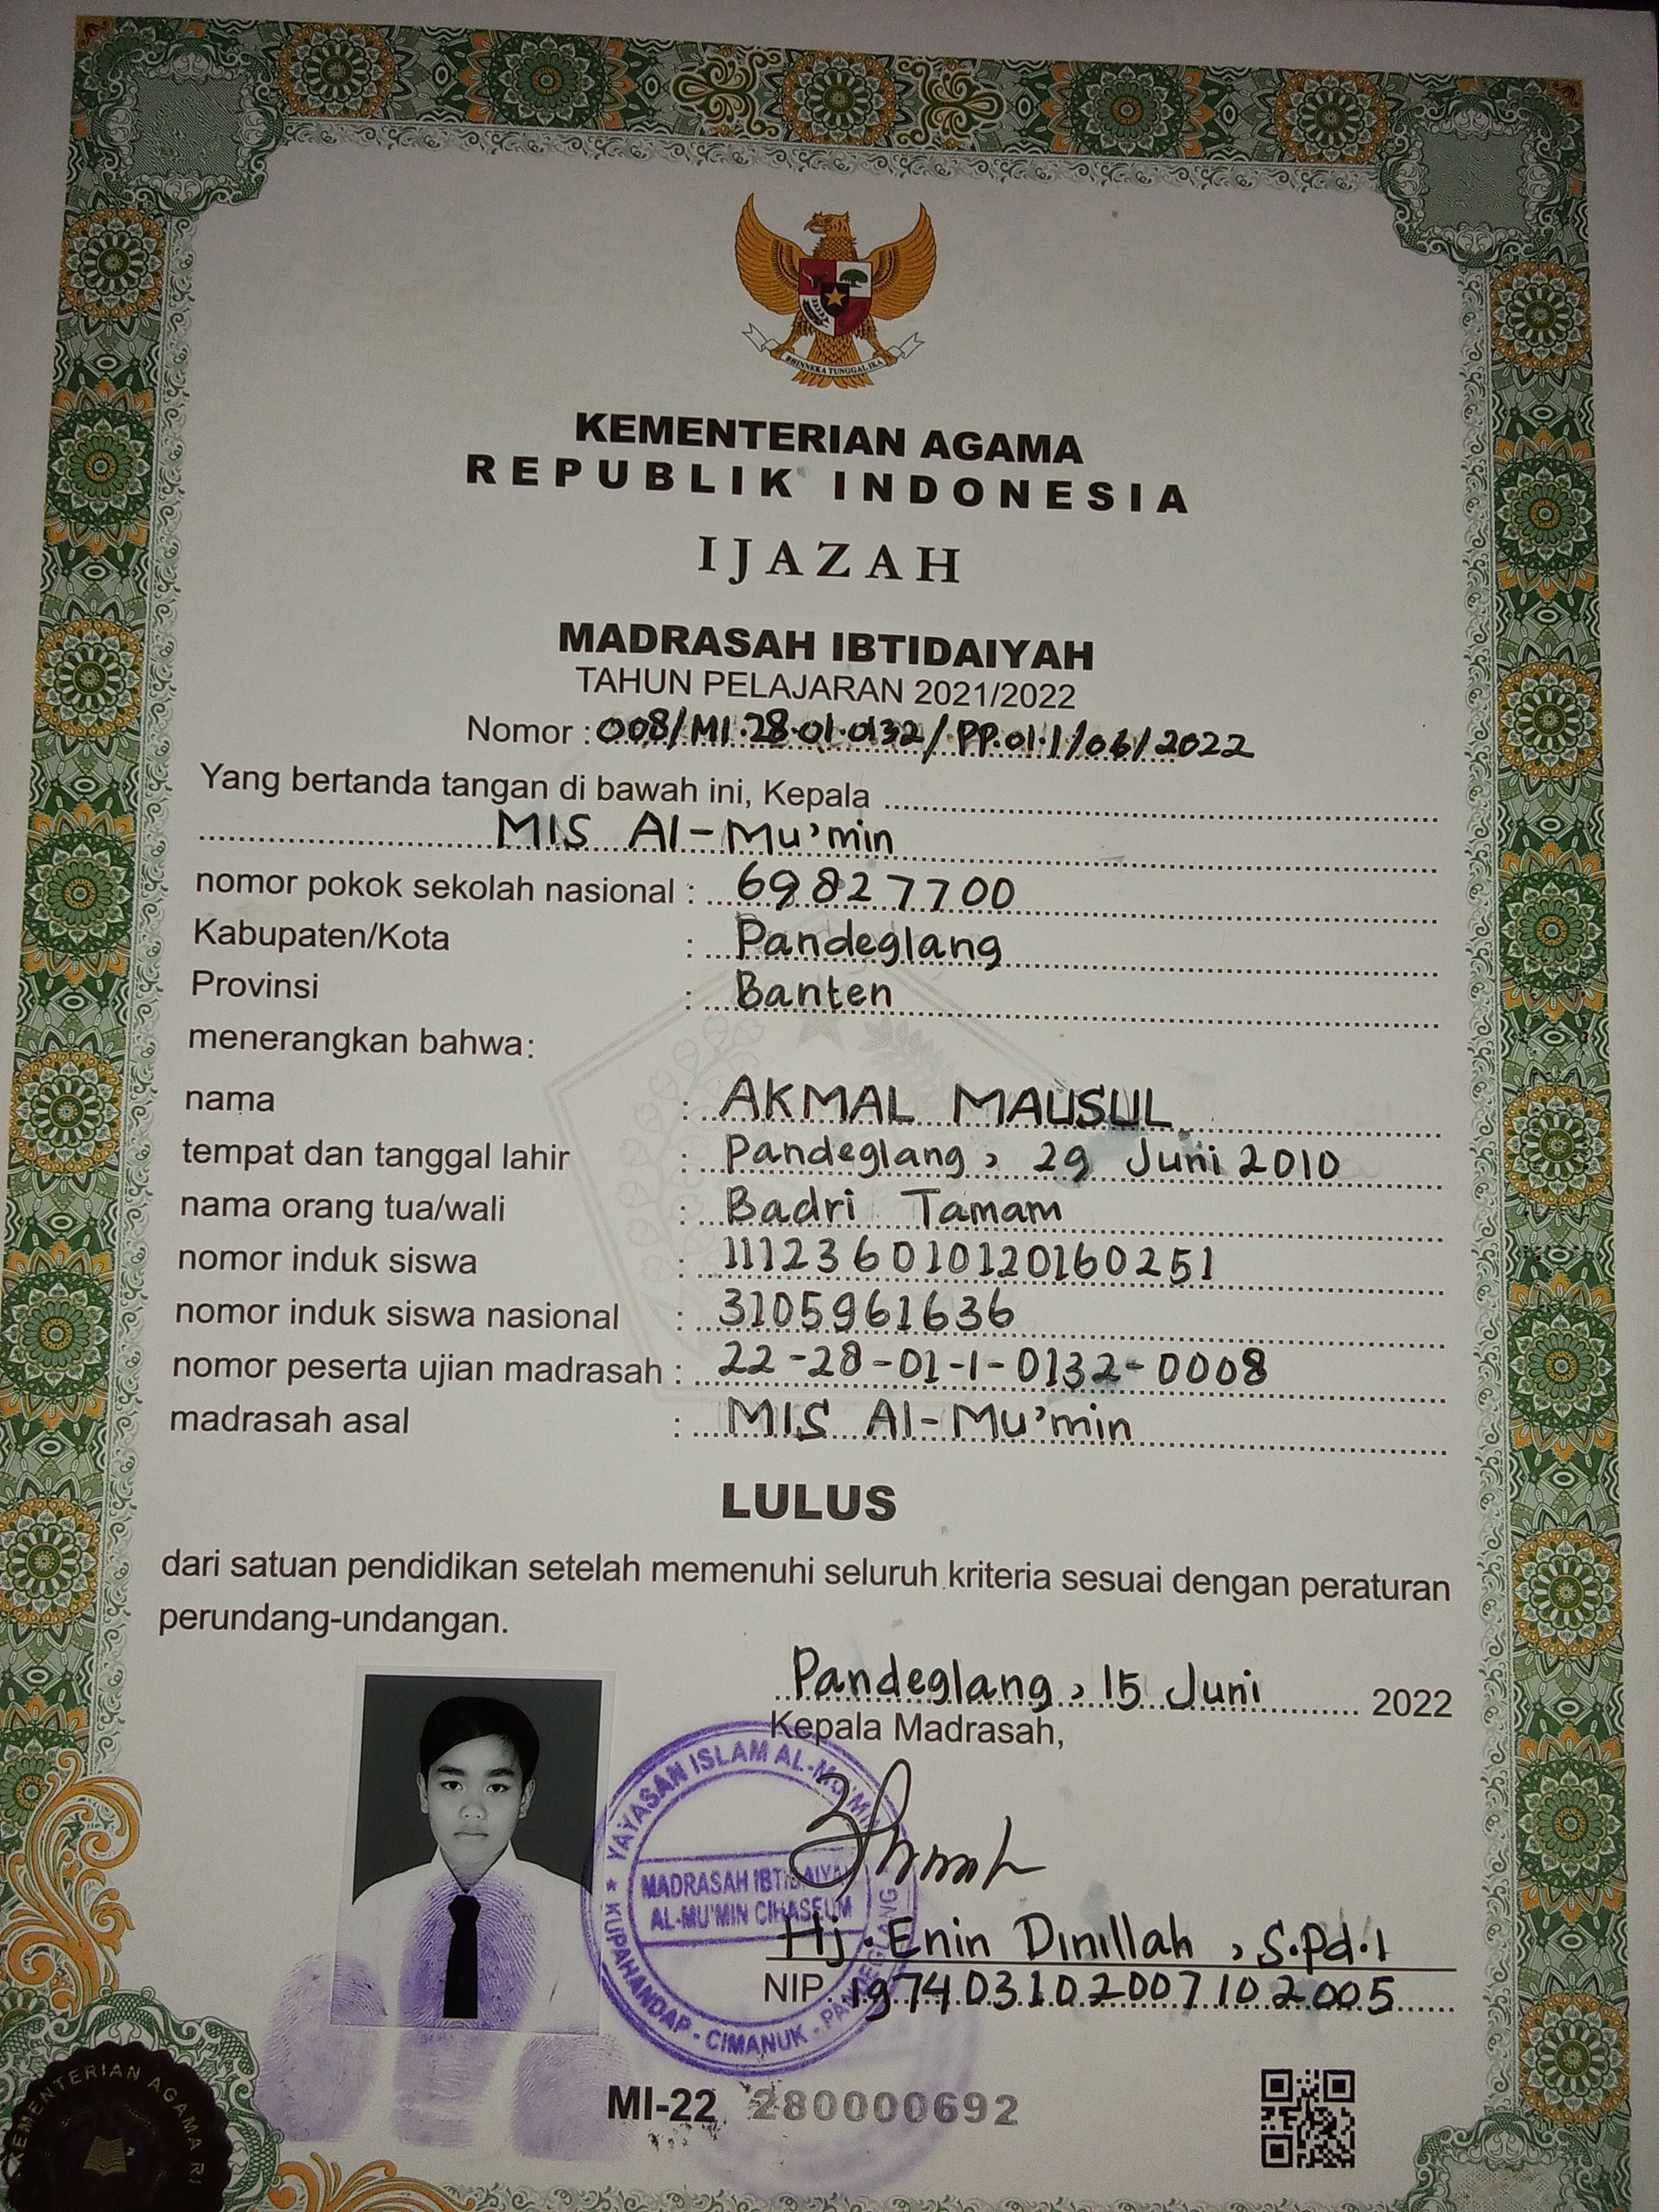 BHINNEKA TUNGGAL IKA
KEMENTERIAN AGAMA
REPUBLIK INDONESIA
IJAZAH
MADRASAH IBTIDAIYAH
TAHUN PELAJARAN 2021/2022
Nomor : 008/MI.28.01.0132/PP.01.1/06/2022
Yang bertanda tangan di bawah ini, Kepala
MIS Al-Mu'min
nomor pokok sekolah nasional : 69827700
Kabupaten/Kota : Pandeglang
Provinsi : Banten
menerangkan bahwa:
nama : AKMAL MAUSUL
tempat dan tanggal lahir : Pandeglang, 29 Juni 2010
nama orang tua/wali : Badri Tamam
nomor induk siswa : 111236010120160251
nomor induk siswa nasional : 3105961636
nomor peserta ujian madrasah : 22-28-01-1-0132-0008
madrasah asal : MIS Al-Mu'min
LULUS
dari satuan pendidikan setelah memenuhi seluruh kriteria sesuai dengan peraturan
perundang-undangan.
Pandeglang, 15 Juni 2022
Kepala Madrasah,
YAYASAN ISLAM AL-MU'MIN
MADRASAH IBTIDAIYAH
AL-MU'MIN CIHASEUM
KUPAHANDAP - CIMANUK - PANDEGLANG
Hj. Enin Dinillah, S.Pd.I
NIP. 197403102007102005
MI-22 280000692
KEMENTERIAN AGAMA RI